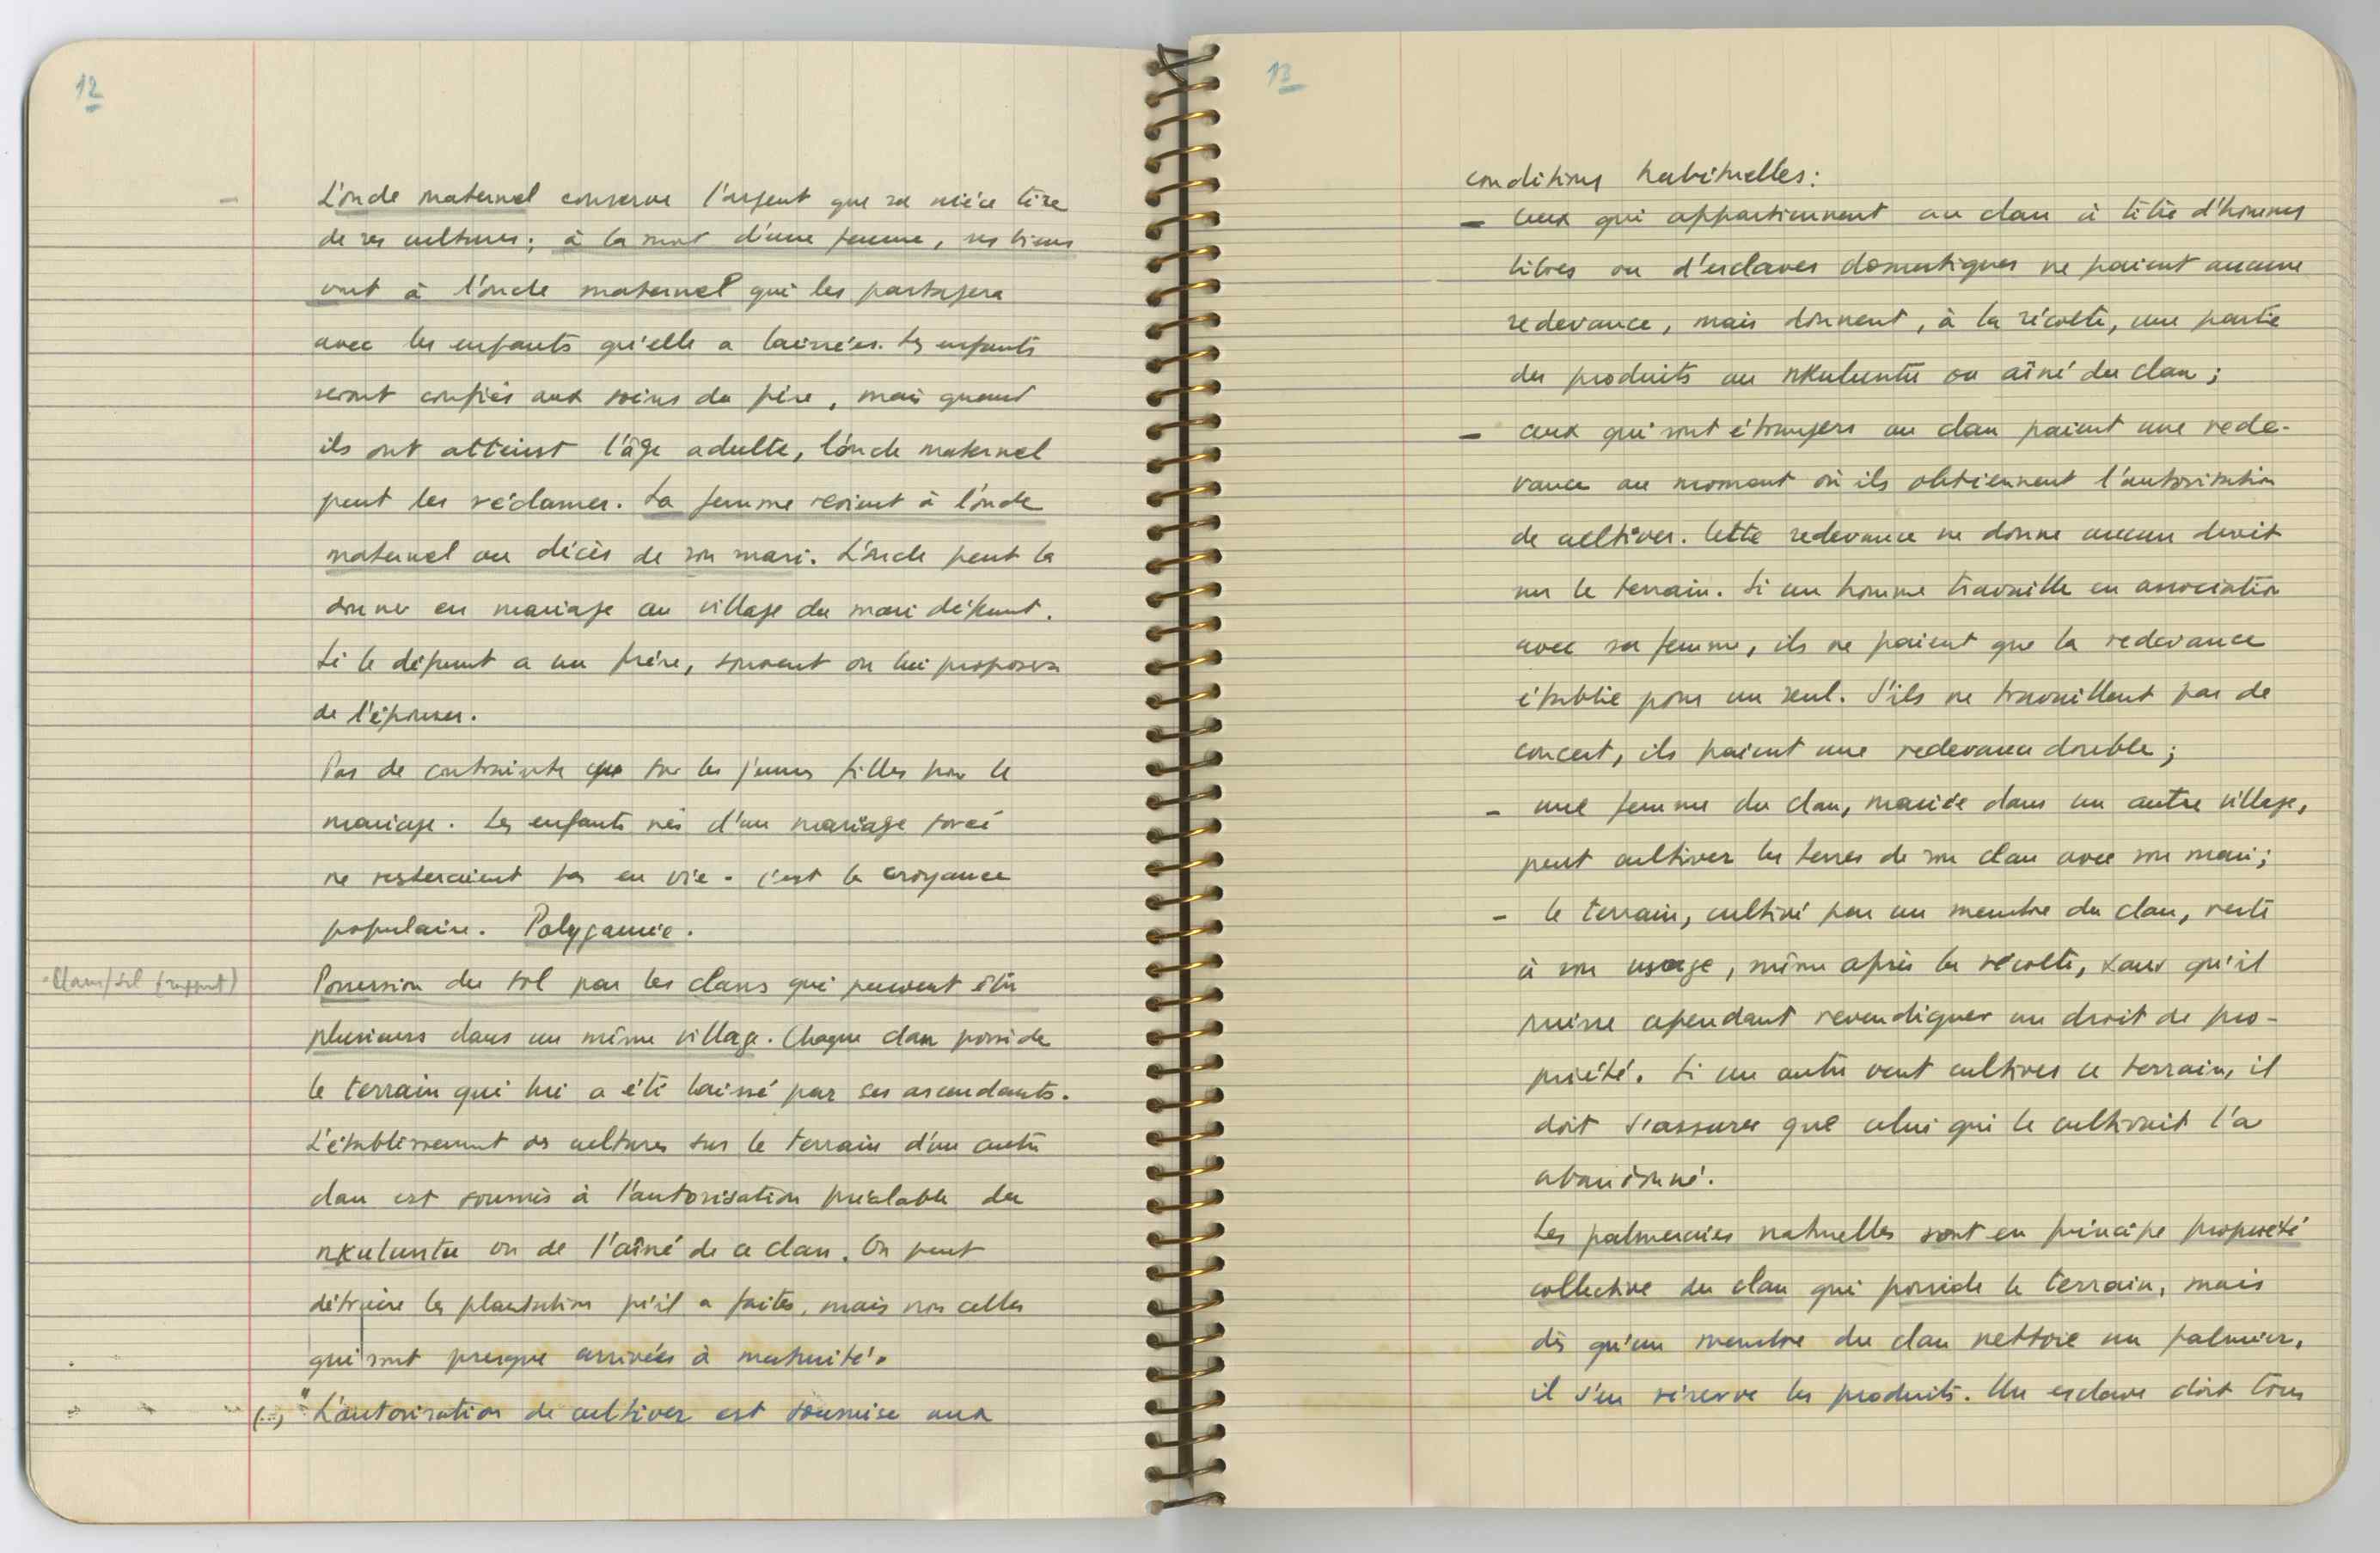 12
L'oncle maternel conserve l'argent que sa nièce tire
de ses cultures; à la mort d'une femme, ses biens
vont à l'oncle maternel qui les partagera
avec les enfants qu'elle a laissés. Les enfants
seront confiés aux soins du père, mais quand
ils ont atteint l'âge adulte, l'oncle maternel
peut les réclamer. La femme revient à l'oncle
maternel au décès de son mari. L'oncle peut la
donner en mariage au village du mari défunt.
Si le défunt a un frère, souvent on lui proposera
de l'épouser.
Pas de contrainte sur les jeunes filles pour le
mariage. Les enfants nés d'un mariage forcé
ne resteraient pas en vie - c'est la croyance
populaire. Polygamie.
- Clan/sol (rapport)
Possession du sol par les clans qui peuvent être
plusieurs dans un même village. Chaque clan possède
le terrain qui lui a été laissé par ses ascendants.
L'établissement de cultures sur le terrain d'un autre
clan est soumis à l'autorisation préalable du
nkuluntu ou de l'aîné de ce clan. On peut
détruire les plantations qu'il a faites, mais non celles
qui sont presque arrivées à maturité.
(...) "L'autorisation de cultiver est soumise aux
13
conditions habituelles:
- ceux qui appartiennent au clan à titre d'hommes
libres ou d'esclaves domestiques ne paient aucune
redevance, mais donnent, à la récolte, une partie
des produits au nkuluntu ou aîné du clan;
- ceux qui sont étrangers au clan paient une rede-
vance au moment où ils obtiennent l'autorisation
de cultiver. Cette redevance ne donne aucun droit
sur le terrain. Si un homme travaille en association
avec sa femme, ils ne paient que la redevance
établie pour un seul. S'ils ne travaillent pas de
concert, ils paient une redevance double;
- une femme du clan, mariée dans un autre village,
peut cultiver les terres de son clan avec son mari;
- le terrain, cultivé par un membre du clan, reste
à son usage, même après la récolte, sans qu'il
puisse cependant revendiquer un droit de pro-
priété. Si un autre veut cultiver ce terrain, il
doit s'assurer que celui qui le cultivait l'a
abandonné.
Les palmeraies naturelles sont en principe propriété
collective du clan qui possède le terrain, mais
dès qu'un membre du clan nettoie un palmier,
il s'en réserve les produits. Un esclave doit tous